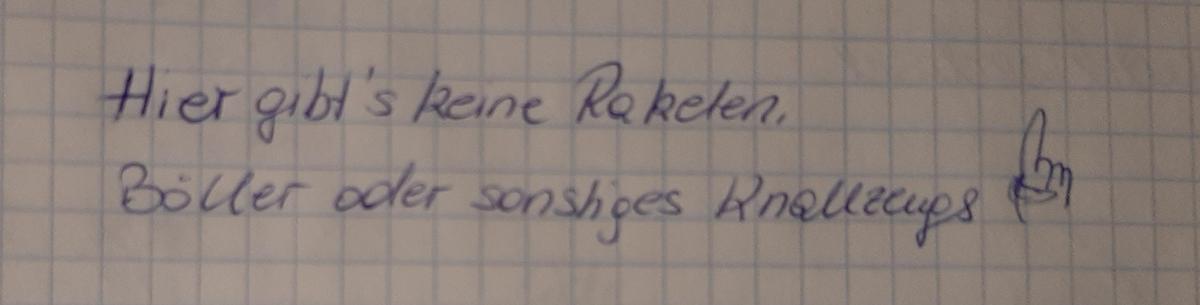 Hier gibt's keine Raketen,
Böller oder sonstiges Knallzeugs